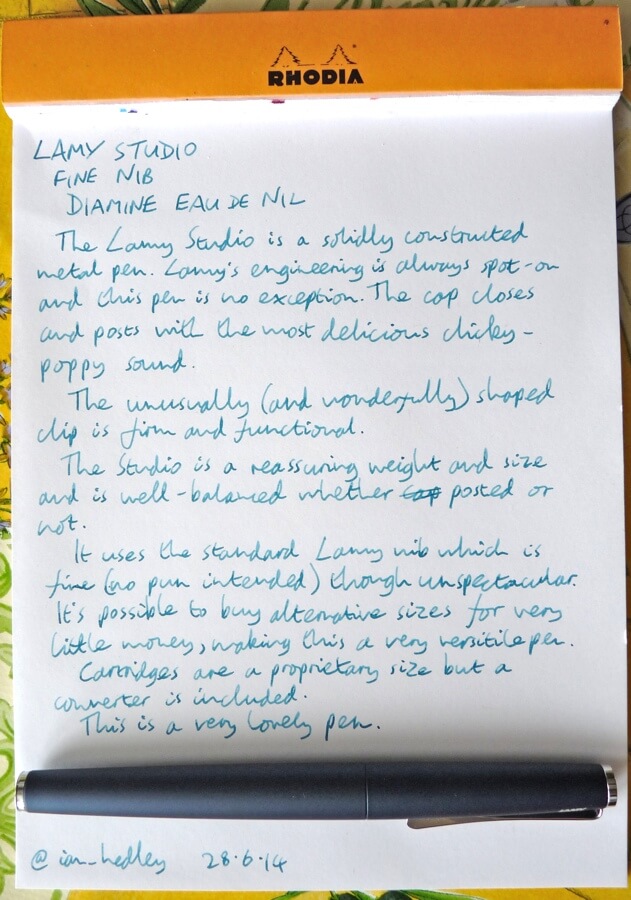 RHODIA
LAMY STUDIO
FINE NIB
DIAMINE EAU DE NIL
The Lamy Studio is a solidly constructed
metal pen. Lamy's engineering is always spot-on
and this pen is no exception. The cap closes
and posts with the most delicious clicky-
poppy sound.
The unusually (and wonderfully) shaped
clip is firm and functional.
The Studio is a reassuring weight and size
and is well-balanced whether cap posted or
not.
It uses the standard Lamy nib which is
fine (no pun intended) though unspectacular.
It's possible to buy alternative sizes for very
little money, making this a very versitile pen.
Cartridges are a proprietary size but a
converter is included.
This is a very lovely pen.
@ian_hedley 28.6.14